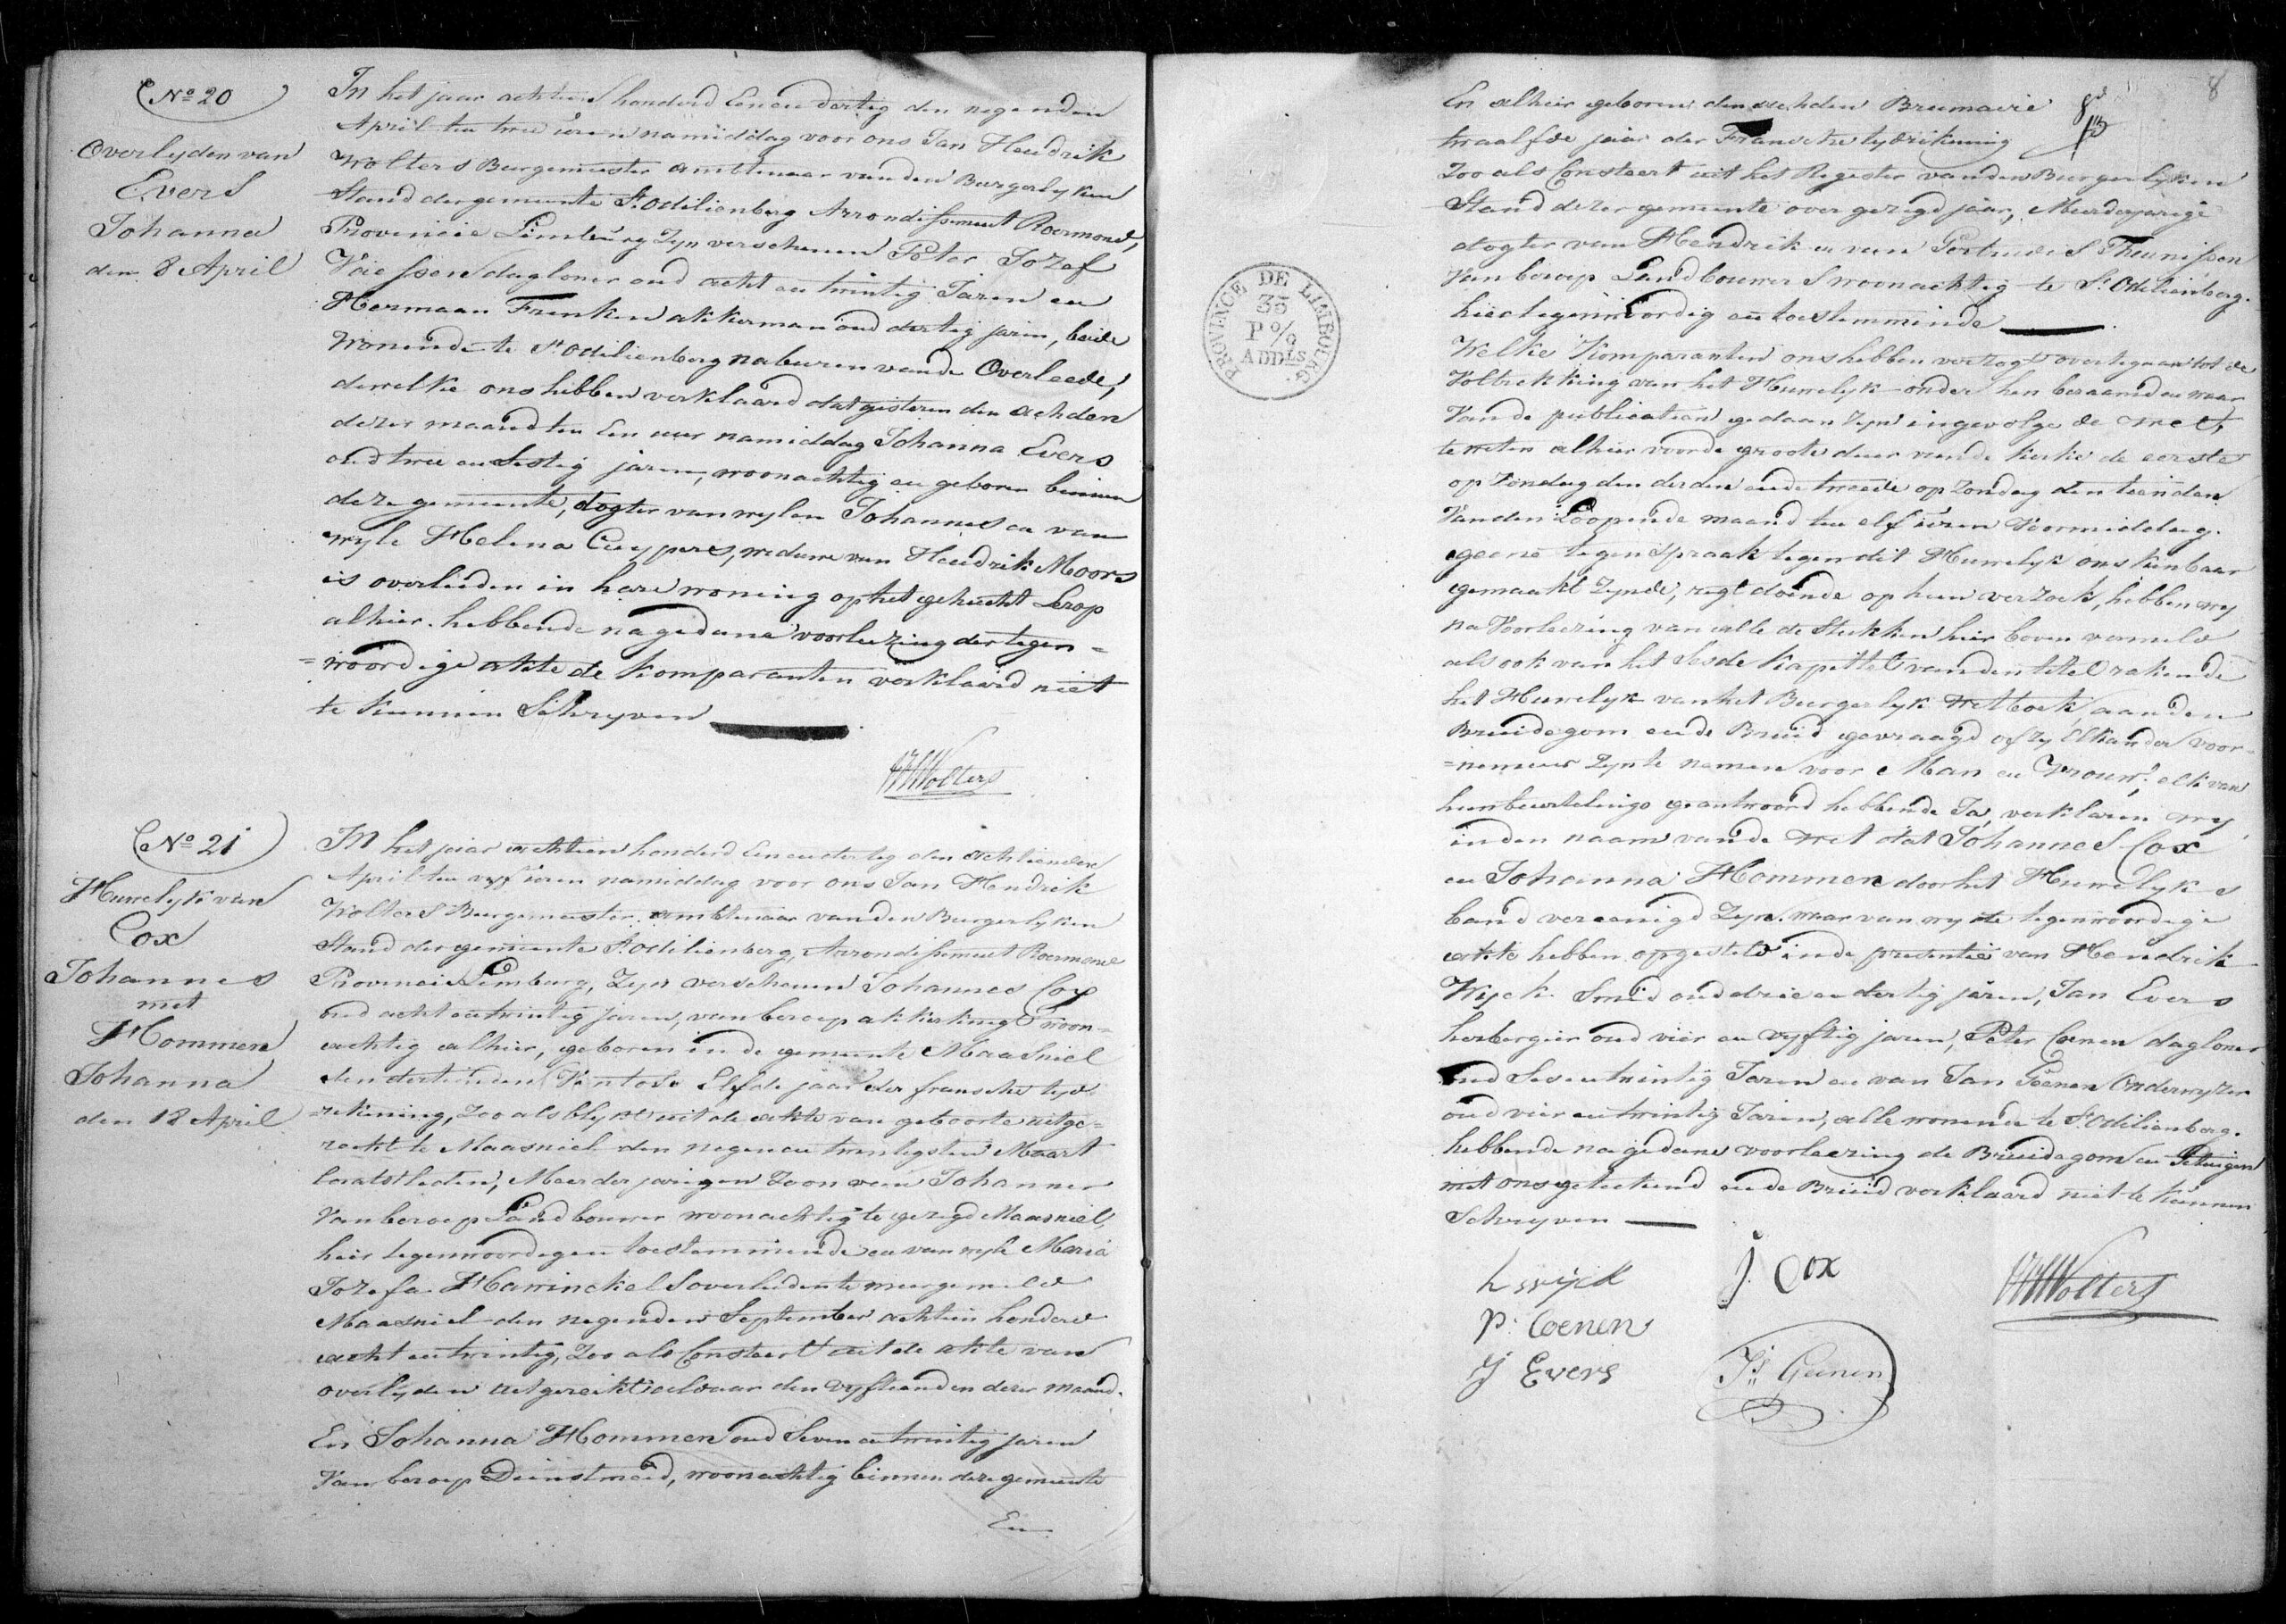 No 20
Overlyden van
Evers
Johanna
den 8 April
In het jaar achtien honderd Een en dertig den negenden
April ten twee uren namiddag voor ons Jan Hendrik
Wolters Burgemeester ambtenaar van den Burgerlyken
Stand der gemeente St. Odilienberg Arrondissement Roermond,
Provincie Limburg Zyn verschenen Peter Jozef
dagloner oud acht en twintig Jaren en
Hermaan Frenken akkerman oud dertig jaren, beide
Wonende te St. Odilienberg naburen van de Overleede,
dewelke ons hebben verklaard dat gisteren den achden
dezer maand ten Een uur namiddag Johanna Evers
oud twee en Sestig jaren, woonachtig en geboren binnen
deze gemeente, dogter van wylen Johannes en van
wyle Helena Cuypers, weduwe van Hendrik Moors
is overleden in hare woning op het gehucht Lerop
alhier. hebbende na gedane voorleezing der tegen=
=woordige akte de komparanten verklaard niet
te kunnen Schryven
JHWolters
No 21
Huwelyk van
Cox
Johannes
met
Hommen
Johanna
den 18 April
In het jaar achtien honderd Een en dertig den achtienden
April ten vyf uren namiddag voor ons Jan Hendrik
Wolters Burgemeester ambtenaar van den Burgerlyken
Stand der gemeente St. Odilienberg, Arrondissement Roermond
Provincie Limburg, Zyn verschenen Johannes Cox
oud acht en twintig jaren, van beroep akkerknegt woon=
achtig alhier, geboren in de gemeente Maasniel
den dertienden Ventose Elfde jaar der fransche tyd
rekening, Zoo als blykt uit de akte van geboorte uitge=
reekt te Maasniel den negen en twintigsten Maart
laatstleden, Meerderjarigen Zoon van Johannes
Van beroep Landbouwer woonachtig te gezegd Maasniel,
hier tegenwoordig en toestemmende en van wyle Maria
Jozefa Hawinckels overleden te meergemeld
Maasniel den negenden September achtien honderd
acht en twintig, Zoo als Consteert uit de akte van
overlyden uitgereikt aldaar den vyftienden dezer maand.
En Johanna Hommen oud Seven en twintig jaren
Van beroep Dienstmeid, woonachtig binnen deze gemeente
En
PROVINCE DE LIMBOURG.
35
P %
ADDLS
8
En alhier geboren den achden Brumaire
twaalfde jaar der Fransche tydrekening
Zoo als Consteert uit het Register van den Burgerlyken
Stand dezer gemeente over gezegd jaar, Meerderjarige
dogter van Hendrik en van Gertrudes Theunissen
Van beroep Landbouwers woonachtig te St. Odilienberg.
hier tegenwoordig en toestemmende
Welke Komparanten ons hebben verzogt overtegaan tot de
Voltrekking van het Huwelyk onder hen beraamd en waar
Van de publicatien gedaan Zyn ingevolge de wet,
te weten alhier voor de groote deur van de kerke de eerste
op Zondag den derden en de tweede op Zondag den tienden
Van den Loopende maand ten elf uren Voormiddag.
geene tegenspraak tegen dit Huwelyk ons kenbaar
gemaakt Zynde, regt doende op hun verzoek, hebben wy
na Voorleezing van alle de Stukken hier boven vermeld
als ook van het Sesde kapittel van den titel rakende
het Huwelyk van het Burgerlyk Wetboek, aan den
Bruidegom en de Bruid gevraagd of Zy Elkander voor=
=nemens Zyn te nemen voor Man en Vrouw, elk van
hun beurtelings geantwoord hebbende Ja, verklaren wy
in den naam van de wet dat Johannes Cox
en Johanna Hommen door het Huwelyks
band vereenigd Zyn. waar van wy de tegenwoordige
akte hebben opgesteld in de presentie van Hendrik
Wyck Smid oud drie en dertig jaren, Jan Evers
herbergier oud vier en vyftig jaren, Peter Coenen dagloner
oud Ses en twintig Jaren en van Jan Geenen Onderwyzer
oud vier en twintig Jaren, alle wonende te St. Odilienberg.
hebbende na gedane voorleezing de Bruidegom en Getuigen
met ons geteekend en de Bruid verklaard niet te kunnen
Schryven
h wyck
j. Cox
JHWolters
P. Coenen
J Evers
Js Geenen